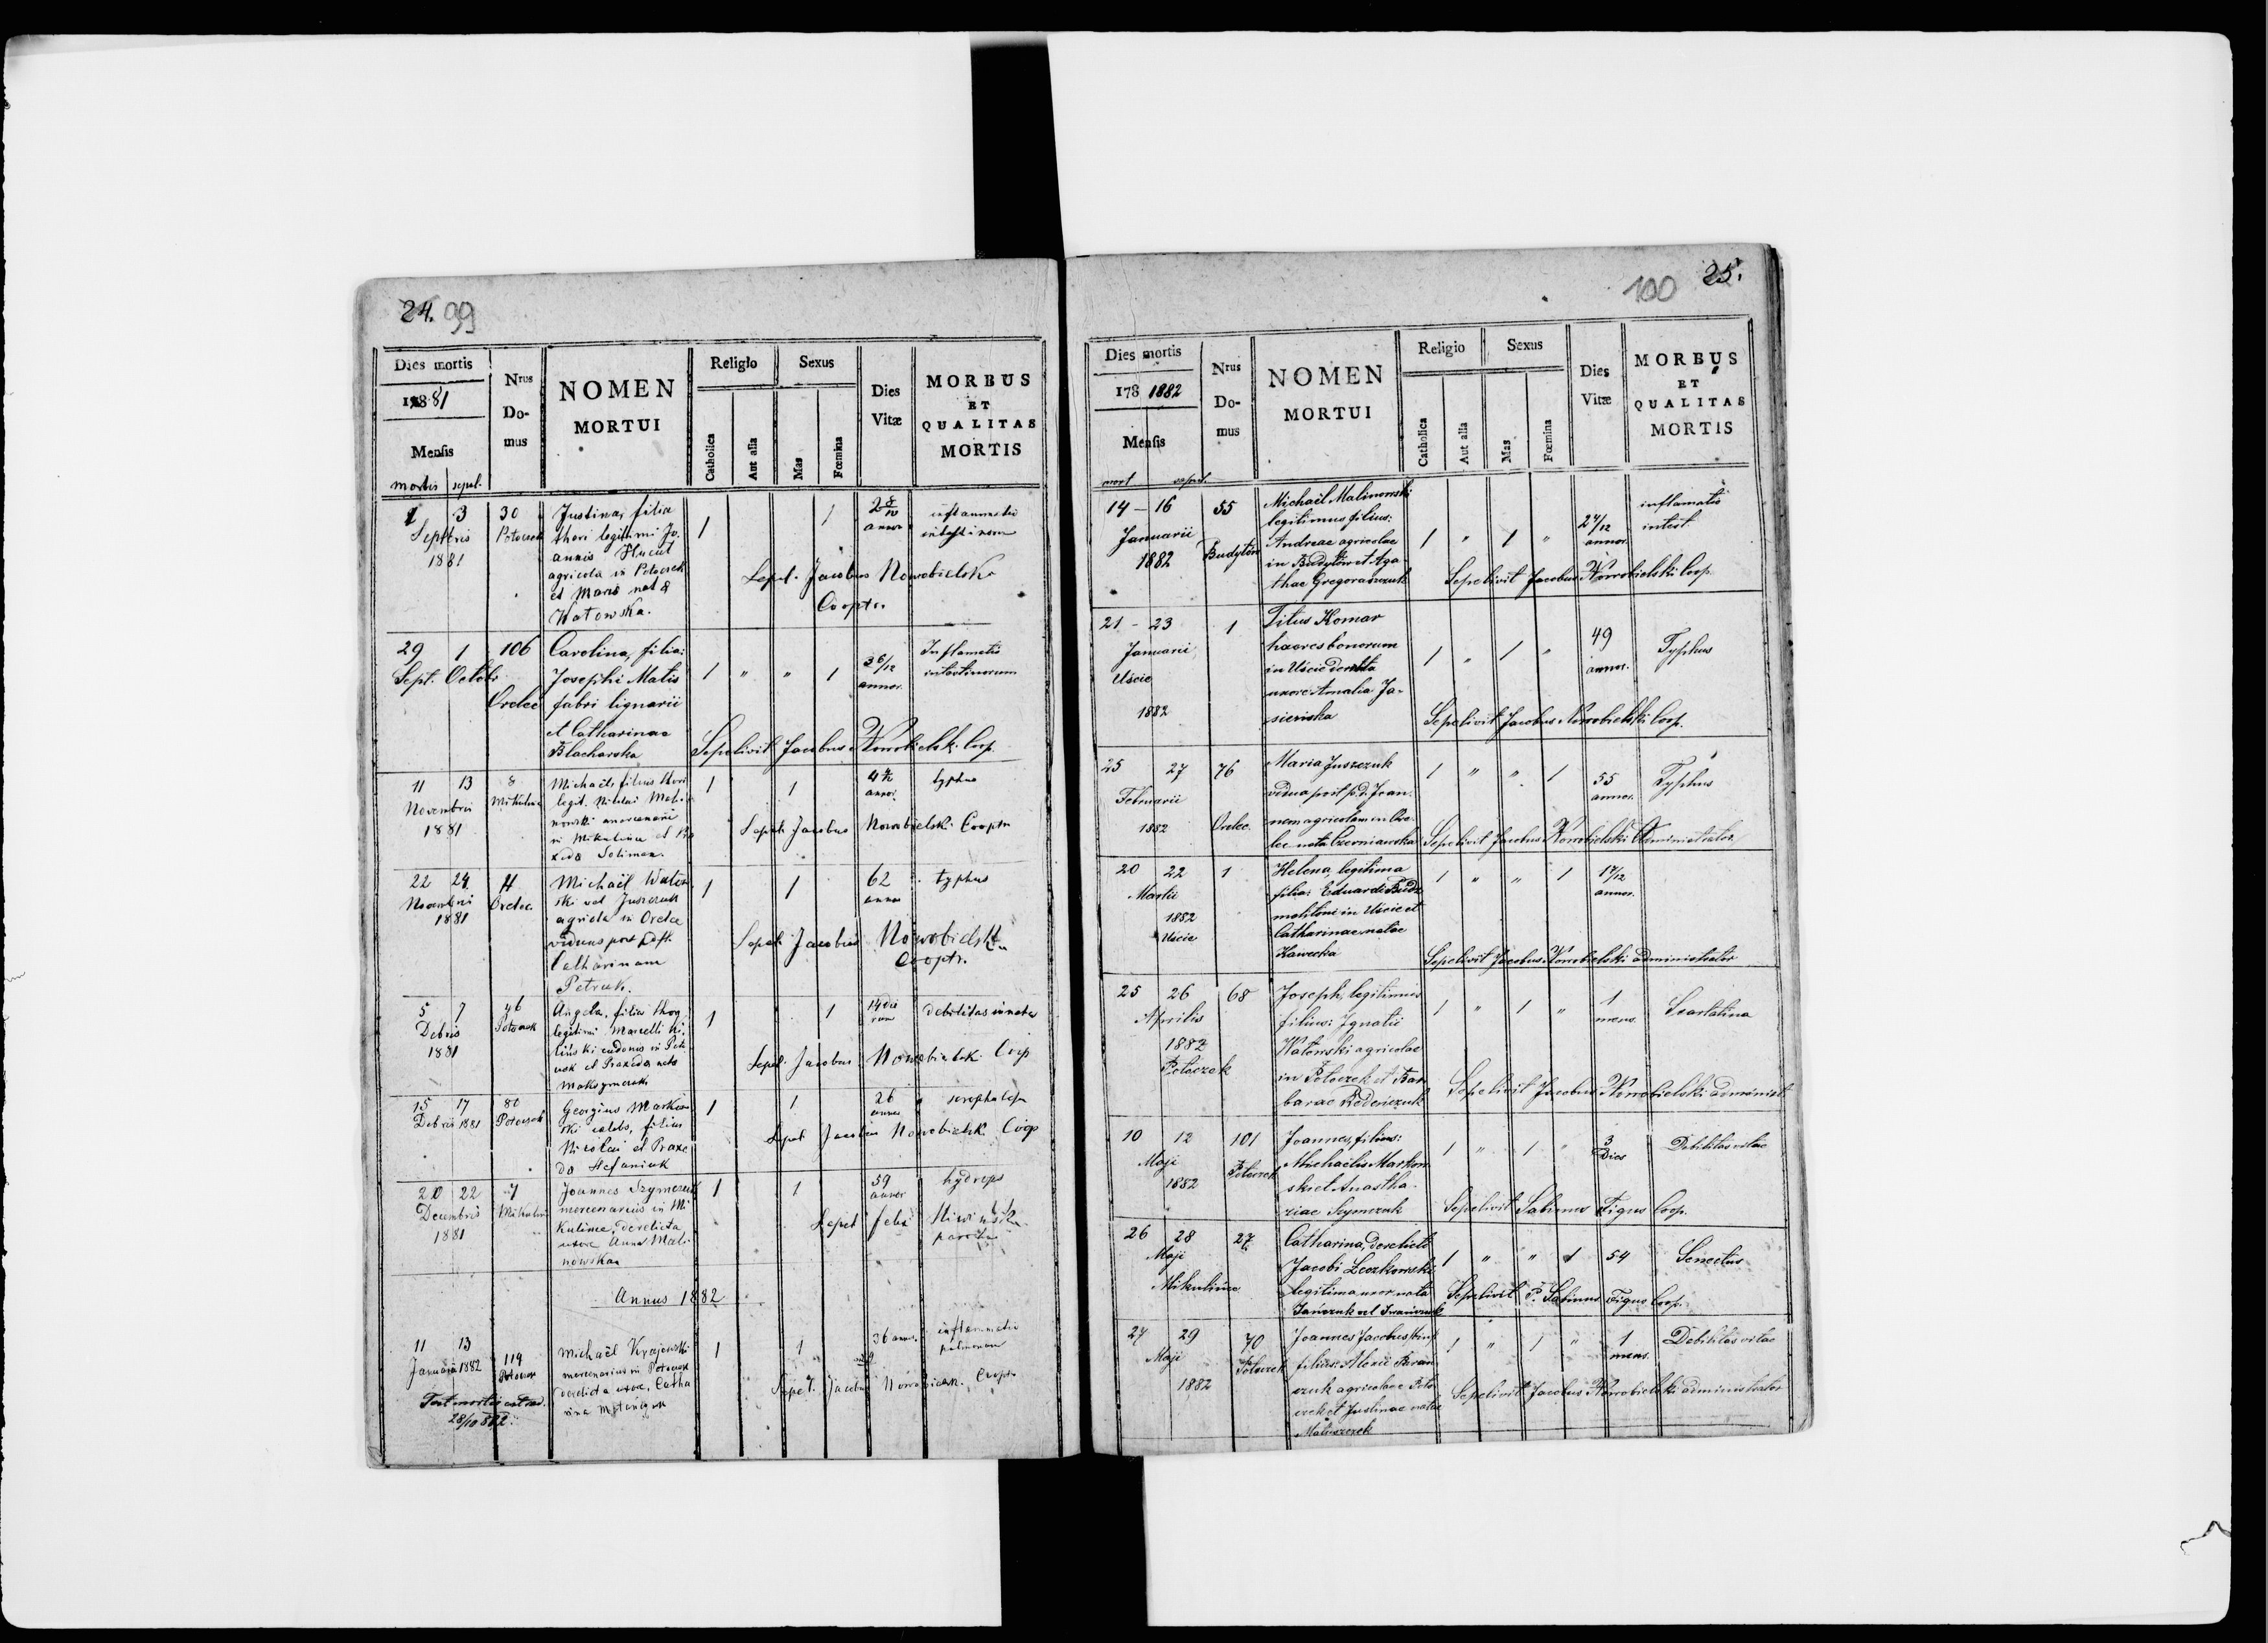 24. 99
Dies mortis
1881
Mensis
mortis sepul.
Nrus Domus
NOMEN
MORTUI
Religio
Sexus
Catholica
Aut alia
Mas
Fœmina
Dies
Vitæ
MORBUS
ET
QUALITAS
MORTIS
1 3 30 Justina, filia 1 1 2 8/12 inflammatio
Septbris Potoczek thori legitimi Jo annor intestinorum
1881 annis Hucuł
agricola in Potoczek
et Maria nata Sepel. Jacobus Nowobielski
Watowska. Cooptr.
29 1 106 Carolina, filia: Inflamatio
Sept. Octob. Josephi Matis 1 " " 1 3 6/12 intestinorum
Orelec fabri lignarii annor.
et Catharinae
Blacharska Sepelivit Jacobus Nowobielski Coop.
11 13 8 Michaël, filius thori 1 1 4 typhus
Novembris Mikulince legit. Nicolai Mali annor.
1881 nowski mercenarii
in Mikulince et Pra Sepel. Jacobus Nowobielski Cooptr
xeda Soliman.
22 24 Michaël Watow 1 1 62 typhus
Novembri Orelec ski vel Juszczuk annor
1881 agricola in Orelec
viduus post
Catharinam Sepel. Jacobus Nowobielski
Petruk. Cooptr.
5 7 46 Angela, filia thor. 1 1 14 die debilitas innata
Debris Potoczek legitimi Marcelli rum
1881 in Poto
czek et Praxeda nata Sepel. Jacobus Nowobielski Coop
Maksymczuk
15 17 80 Georgius Markow 1 1 26
Debris 1881 Potoczek ski caelebs, filius annor
Nicolai et Praxe Sepel. Jacobus Nowobielski Coop
da Stefaniuk
20 22 7 Joannes Szymczuk 1 1 59 hydrops
Decembris Mikulin mercenarius in Mi annor
1881 kulince, derelicta Sepel felix
uxore Anna Mali
nowska
Annus 1882
11 13 Michaël Krajewski 1 1 36 annor. inflammatio
Januarii 1882 119 mercenarius in Potoczek pulmonum
Potoczek derelicta uxore, Catha Sepel. Jacobus Nowobielski Cooptr
Test mortis extrad. rina
28/10 882.
100 25.
Dies mortis
178 1882
Mensis
mort sepul.
Nrus Domus
NOMEN
MORTUI
Religio
Sexus
Catholica
Aut alia
Mas
Fœmina
Dies
Vitæ
MORBUS
ET
QUALITAS
MORTIS
14 - 16 55 Michaël Malinowski inflamatio
legitimus filius: 2 7/12 intest.
Januarii Andreae agricolae 1 " 1 " annor.
1882 Budyłów in Budyłów et Aga
thae Gregoraszczuk Sepelivit Jacobus Nowobielski Coop.
21 - 23 1 Titus Komar
Januarii haeres bonorum 49 Typhus
Uście in Uście derelicta 1 " 1 " annor.
uxore Amalia Ja-
1882 sieńska Sepelivit Jacobus Nowobielski Coop.
25 27 76 Maria Juszczuk 1 " " 1 55 Typhus
Februarii vidua post p.d. Joan- annor.
nem agricolam in Ore-
1882 Orelec. lec nata Czerniawska Sepelivit Jacobus Nowobielski Administrator
20 22 1 Helena, legitima 1 " " 1 1 7/12
Martii filia: Eduardi Budz annor.
1882 molitoris in Uście et
Uście Catharinae natae
Kawecka Sepelivit Jacobus Nowobielski administrator
25 26 68 Joseph, legitimus 1 " 1 " 1 Scarlatina
Aprilis filius: Ignatii mens.
1882 Watowski agricolae
Potoczek in Potoczek et Bar
barae Fedeńczuk Sepelivit Jacobus Nowobielski administ.
10 12 101 Joannes, filius: 1 " 1 " 3 Debilitas vitae
Maji Potoczek Michaelis Markow Dies
1882 ski et Anastha-
ziae Szymczuk Sepelivit Sabinus Figus Coop.
26 28 27 Catharina, derelicta 1 " " 1 54 Senectus
Maji Jacobi Leszkowski
Mikulińce legitima uxor nata Sepelivit P. Sabinus Figus Coop.
Jańczuk vel Iwańczuk
27 29 70 Joannes Jacobus 1 " 1 " 1 Debilitas vitae
Maji Potoczek filius: Alexii mens.
1882 czuk agricolae Poto
czek et Justinae natae Sepelivit Jacobus Nowobielski administrator
Matuszczek